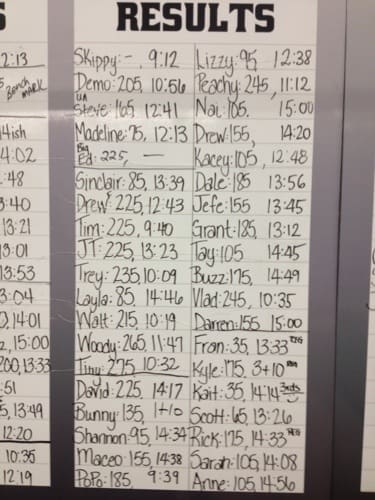 RESULTS
2:13
Bench
mark
14ish
4:02
:48
3:40
13:21
13:01
13:53
3:04
0,14:01
2, 15:00
200, 13:33
:51
5, 13:49
12:20
10:35
12:19
Skippy: -, 9:12
Demo: 205, 10:56
Steve: 165, 12:41
Madeline: 95, 12:13
Big
Ed: 225, —
Sinclair: 85, 13:39
Drew: 225, 12:43
Tim: 225, 9:40
JT: 225, 13:23
Trey: 235, 10:09
Layla: 85, 14:46
Walt: 215, 10:19
Woody: 265, 11:47
Tiny: 275, 10:32
David: 225, 14:17
Bunny: 135, 1+10
Shannon: 95, 14:34
Maceo: 155, 14:38
PoPo: 185, 9:39
Lizzy: 95, 12:38
Peachy: 245, 11:12
Nai: 105, 15:00
Drew: 155, 14:20
Kacey: 105, 12:48
Dale: 185 13:56
Jefe: 155 13:45
Grant: 185, 13:12
Tay: 105 14:45
Buzz: 175, 14:49
Vlad: 245, 10:35
Darren: 155 15:00
Fran: 35, 13:33
Kyle: 175, 3+10
Kait: 35, 14:14 3rds
Scott: 65, 13:26
Rick: 175, 14:33
Sarah: 105, 14:08
Anne: 105, 14:56